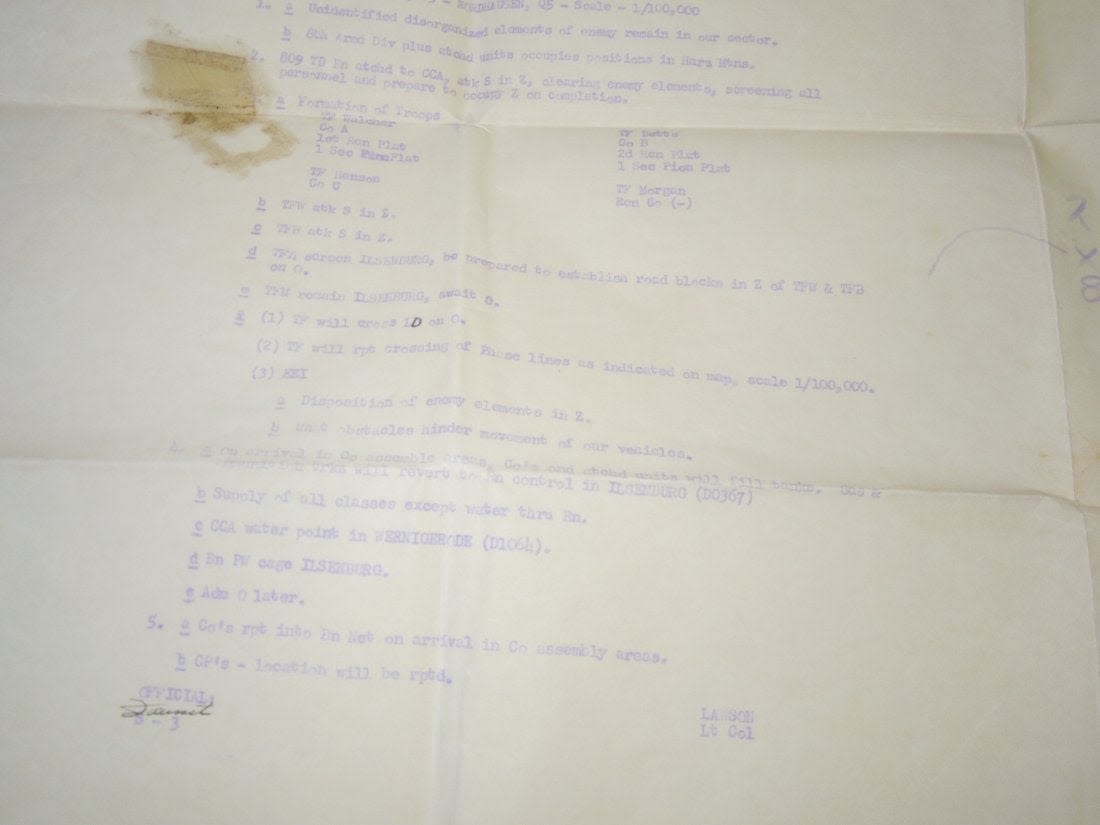 NORDHAUSEN, Q5 - Scale - 1/100,000
1. a Unidentified disorganized elements of enemy remain in our sector.
b 8th Armd Div plus atchd units occupies positions in Harz Mtns.
2. 809 TD Bn atchd to CCA, atk S in Z, clearing enemy elements, screening all
personnel and prepare to occupy Z on completion.
a Formation of Troops
TF Walcher
Co A
1st Rcn Plat
1 Sec Plat
TF Henson
Co C
TF Betts
Co B
2d Rcn Plat
1 Sec Pion Plat
TF Morgan
Rcn Co (-)
b TFW atk S in Z.
c TFB atk S in Z.
d TFH screen ILSENBURG, be prepared to establish road blocks in Z of TFW & TFB
on O.
e TFM remain ILSENBURG, await O.
(1) TF will cross LD on O.
(2) TF will rpt crossing of Phase lines as indicated on map, scale 1/100,000.
(3) EEI
a Disposition of enemy elements in Z.
b What obstacles hinder movement of our vehicles.
4. a On arrival in Co assemble areas, Co's and atchd units will fill tanks. Gas &
ammunition trks will revert to Bn control in ILSENBURG (D0367)
b Supply of all classes except water thru Bn.
c CCA water point in WERNIGERODE (D1064).
d Bn PW cage ILSENBURG.
e Adm O later.
5. a Co's rpt into Bn Net on arrival in Co assembly areas.
b CP's - location will be rptd.
OFFICIAL:
S - 3
LAWSON
Lt Col
X 8